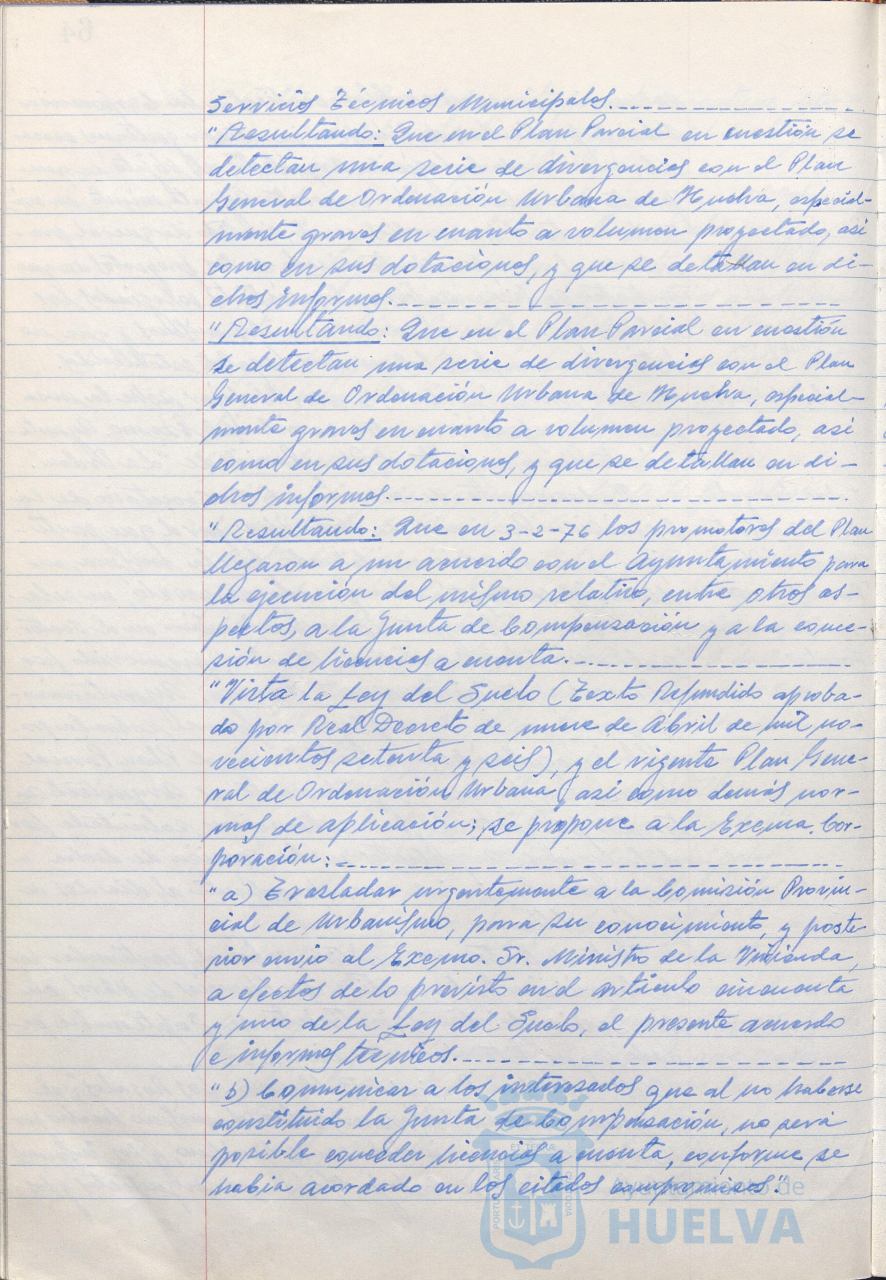 Servicios Técnicos Municipales.
"Resultando: Que en el Plan Parcial en cuestión se
detectan una serie de divergencias con el Plan
General de Ordenación Urbana de Huelva, especial-
mente graves en cuanto a volumen proyectado, así
como en sus dotaciones, y que se detallan en di-
chos informes.
"Resultando: Que en el Plan Parcial en cuestión
se detectan una serie de divergencias con el Plan
General de Ordenación Urbana de Huelva, especial-
mente graves en cuanto a volumen proyectado, así
como en sus dotaciones, y que se detallan en di-
chos informes.
"Resultando: Que en 3-2-76 los promotores del Plan
llegaron a un acuerdo con el Ayuntamiento para
la ejecución del mismo relativo, entre otros as-
pectos, a la Junta de Compensación y a la conce-
sión de licencias a cuenta.
"Vista la Ley del Suelo (Texto Refundido aproba-
do por Real Decreto de nueve de Abril de mil no-
vecientos setenta y seis), y el vigente Plan Gene-
ral de Ordenación Urbana, así como demás nor-
mas de aplicación; se propone a la Excma. Cor-
poración:
"a) Trasladar urgentemente a la Comisión Provin-
cial de Urbanismo, para su conocimiento, y poste
rior envío al Excmo. Sr. Ministro de la Vivienda,
a efectos de lo previsto en el artículo cincuenta
y uno de la Ley del Suelo, el presente acuerdo
e informes técnicos.
"b) Comunicar a los interesados que al no haberse
constituido la Junta de Compensación, no será
posible conceder licencias a cuenta, conforme se
había acordado en los citados compromisos".
Ayuntamiento de
HUELVA